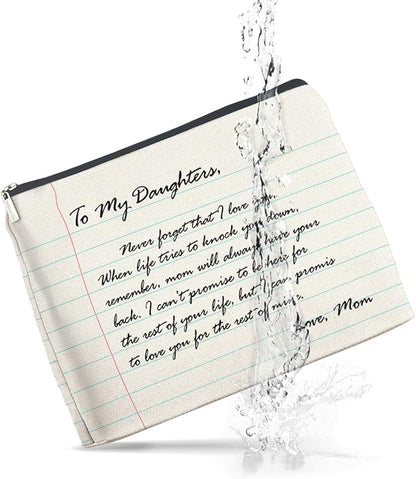 To My Daughters,
Never forget that I love you,
When life tries to knock you down,
remember, mom will always have your
back. I can't promise to be here for
the rest of your life, but I can promis
to love you for the rest of mine.
Love, Mom